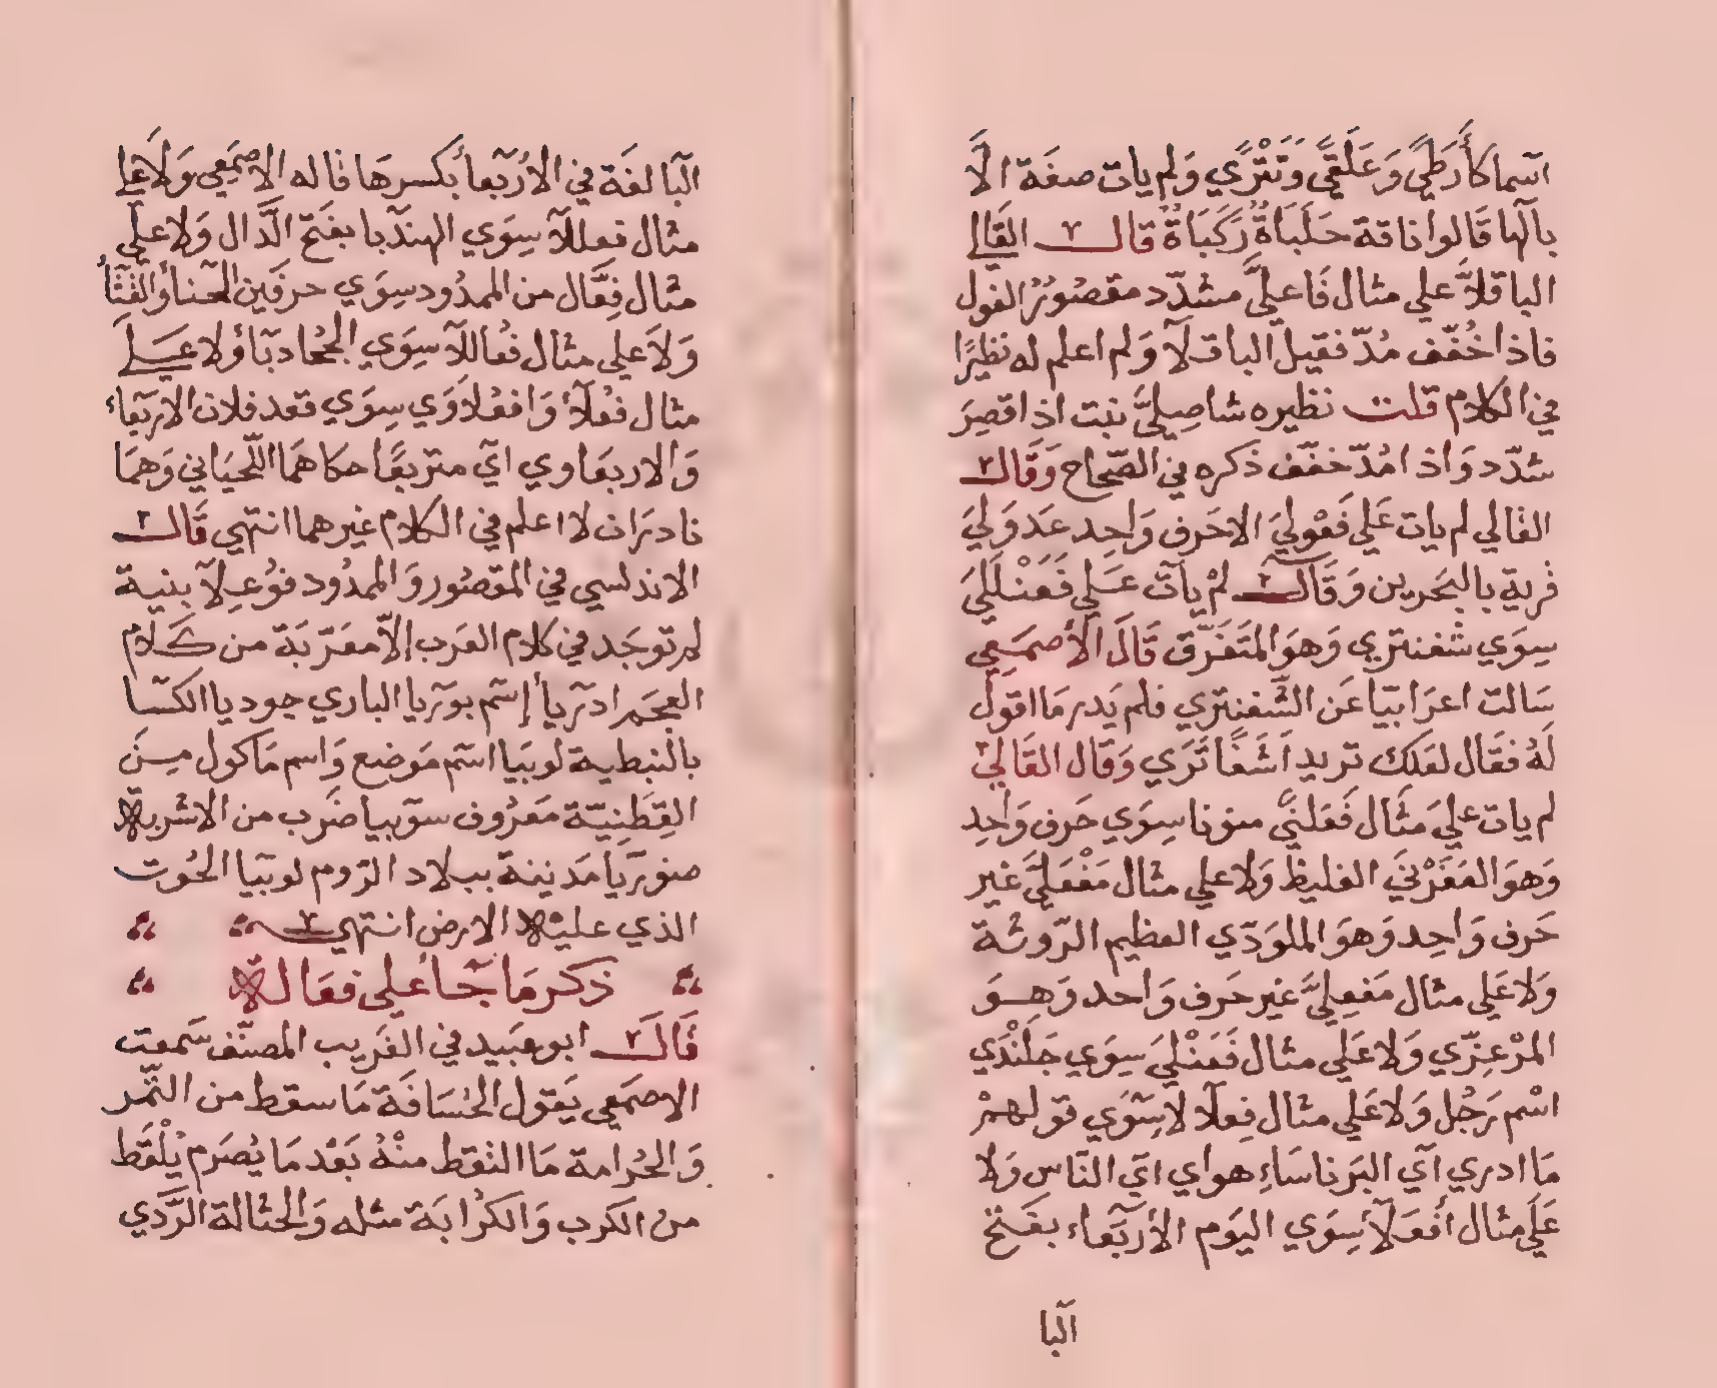 اسما كأرطيً وَعَلَقيً وَتَتْرًي وَلم يات صفة الاَّ
بالها قَالوا ناقة حَلَبَاةٌ رَكَبَاةٌ قال القَالي
الباقلاَّ علي مثال فَاعليَّ مشدّد مقصُورٌ الفول
فاذا خُفّف مُدّ فقيل الباقلآ وَلم اعلم له نظيرًا
في الكلام قلت نظيره شاصِليَّ نبت اذا قصِرَ
شدّد وَاذا مُدّ خفّف ذكره في الصّحاح وَقَال
القالي لم يات عَلي فَعْوليَ الا حَرف وَاحِد عَدَوليَ
قرية بالبحَرين وَقَال لمْ يات عَلي فَعَنْلَليَ
سِوَي شفنتري وَهوَ المتَفَرّق قَالَ الأصمَعِي
سَالت اعرَابيّا عَن الشّفنتري فلم يَدر مَا اقول
لَهُ فقَال لعَلك تريد اَشَفًا تَرَي وَقال القَالي
لم يات عليَ مثَال فَعَلنيً منونا سِوَي حَرف وَاحِد
وَهوَ العَفَرْنيَ الغليظ وَلا علي مثال مَفْعَليَّ غير
حَرف وَاحِد وَهوَ الملوَدّي العظيم الرّوثة
وَلا عَلي مثال مَفعِليَّ غير حَرف وَاحد وَهوَ
المرْعِزّي وَلا عَلي مثال فَعَنْليَ سِوَي جَلنْدَي
اسْم رَجُل وَلا عَلي مثال فِعلآلا سِوَي قولهمْ
مَا ادري اَي البَرناسَاءِ هو اي ايّ النّاس وَلا
عَلي مثال أفعَلآءَ سِوَي اليَوم الأرْبَعاء بفَتح
البا
البا لغَة في الارْبَعاءُ بكسرهَا قاله الاصْمَعي وَلا علي
مثال فعللآ سِوَي الهندَبا بفَتح الدَّال وَلا علي
مثال فِعَّال من الممدُود سِوَي حرفَين الحنا وَالقثَّا
وَلاَ علي مثال فُعاللآ سِوَي الجخادبَاءُ وَلا عَلي
مثال فعْلآءُ وَافعُلاوَي سِوَي قعد فلان الارْبَعاء
وَالاربعَاوي ايَ متربعًا حكاهمَا اللّحيَاني وَهمَا
نادرَان لا اعلم في الكلام غيرهما انتهي قَال
الاندلسي في المقصُور وَالممدُود فوُعِلآ بنية
لم توجَد في كلام العَرب إلاّ معَرّبَة من كَلامْ
العجَم ادريا إسَم بوريا الباري جوديا الكسَا
بالنبطية لوبيَا اسَم مَوضع وَاسم مَاكول مِنَ
القِطنِيّة معَرُوف سوبيا ضَرب من الاشربة
صنورَيا مَدينة ببلاد الرّوم لوبَيا الحُوت
الذي عليْه الارض انتهي
ذكر مَا جَا عَلي فعَالة
قَالَ ابو عبَيد في الغَريب المصنّف سَمعت
الاصمَعي يَقول الحُسَافَة مَا سقط من التّمر
وَالحُرامة مَا التقط منْهُ بَعْد مَا يُصَرم يُلْقَط
من الكرب وَالكرَابَة مثله وَالحثالة الرَّدي